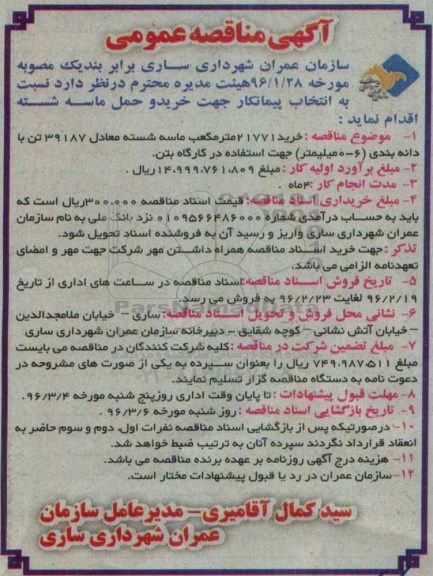 آگهی مناقصه عمومی
سازمان عمران شهرداری ساری برابر بندیک مصوبه
مورخه ۹۶/۱/۲۸هیئت مدیره محترم درنظر دارد نسبت
به انتخاب پیمانکار جهت خریدو حمل ماسه شسته
اقدام نماید :
۱- موضوع مناقصه :خرید۲۱۷۷۱مترمکعب ماسه شسته معادل ۳۹۱۸۷ تن با
دانه بندی (۶-۰میلیمتر) جهت استفاده در کارگاه بتن.
۲- مبلغ برآورد اولیه کار : مبلغ ۱۴،۹۹۹،۷۶۱،۸۰۹ریال .
۳- مدت انجام کار :۴ماه .
۴- مبلغ خریداری اسناد مناقصه: قیمت اسناد مناقصه ۳۰۰،۰۰۰ریال است که
باید به حساب درآمدی شماره ۰۱۰۹۵۶۶۴۸۶۰۰۰ نزد بانک ملی به نام سازمان
عمران شهرداری ساری واریز و رسید آن به فروشنده اسناد تحویل شود.
تذکر :جهت خرید اسناد مناقصه همراه داشتن مهر شرکت جهت مهر و امضای
تعهدنامه الزامی می باشد.
۵- تاریخ فروش اسناد مناقصه:اسناد مناقصه در ساعت های اداری از تاریخ
۹۶/۲/۱۹ لغایت ۹۶/۲/۲۳ به فروش می رسد.
۶- نشانی محل فروش و تحویل اسناد مناقصه:ساری - خیابان ملامجدالدین
-خیابان آتش نشانی- کوچه شقایق - دبیرخانه سازمان عمران شهرداری ساری
۷- مبلغ تضمین شرکت در مناقصه :کلیه شرکت کنندگان در مناقصه می بایست
مبلغ ۷۴۹،۹۸۷،۵۱۱ ریال را بعنوان سپرده به یکی از صورت های مشروحه در
دعوت نامه به دستگاه مناقصه گزار تسلیم نمایند.
۸-مهلت قبول پیشنهادات :تا پایان وقت اداری روزپنج شنبه مورخه ۹۶/۳/۴.
۹- تاریخ بازگشایی اسناد مناقصه : روز شنبه مورخه ۹۶/۳/۶ .
۱۰-درصورتیکه پس از بازگشایی اسناد مناقصه نفرات اول، دوم و سوم حاضر به
انعقاد قرارداد نگردند سپرده آنان به ترتیب ضبط خواهد شد.
۱۱- هزینه درج آگهی روزنامه بر عهده برنده مناقصه می باشد.
۱۲-سازمان عمران در رد یا قبول پیشنهادات مختار است.
سید کمال آقامیری- مدیرعامل سازمان
عمران شهرداری ساری